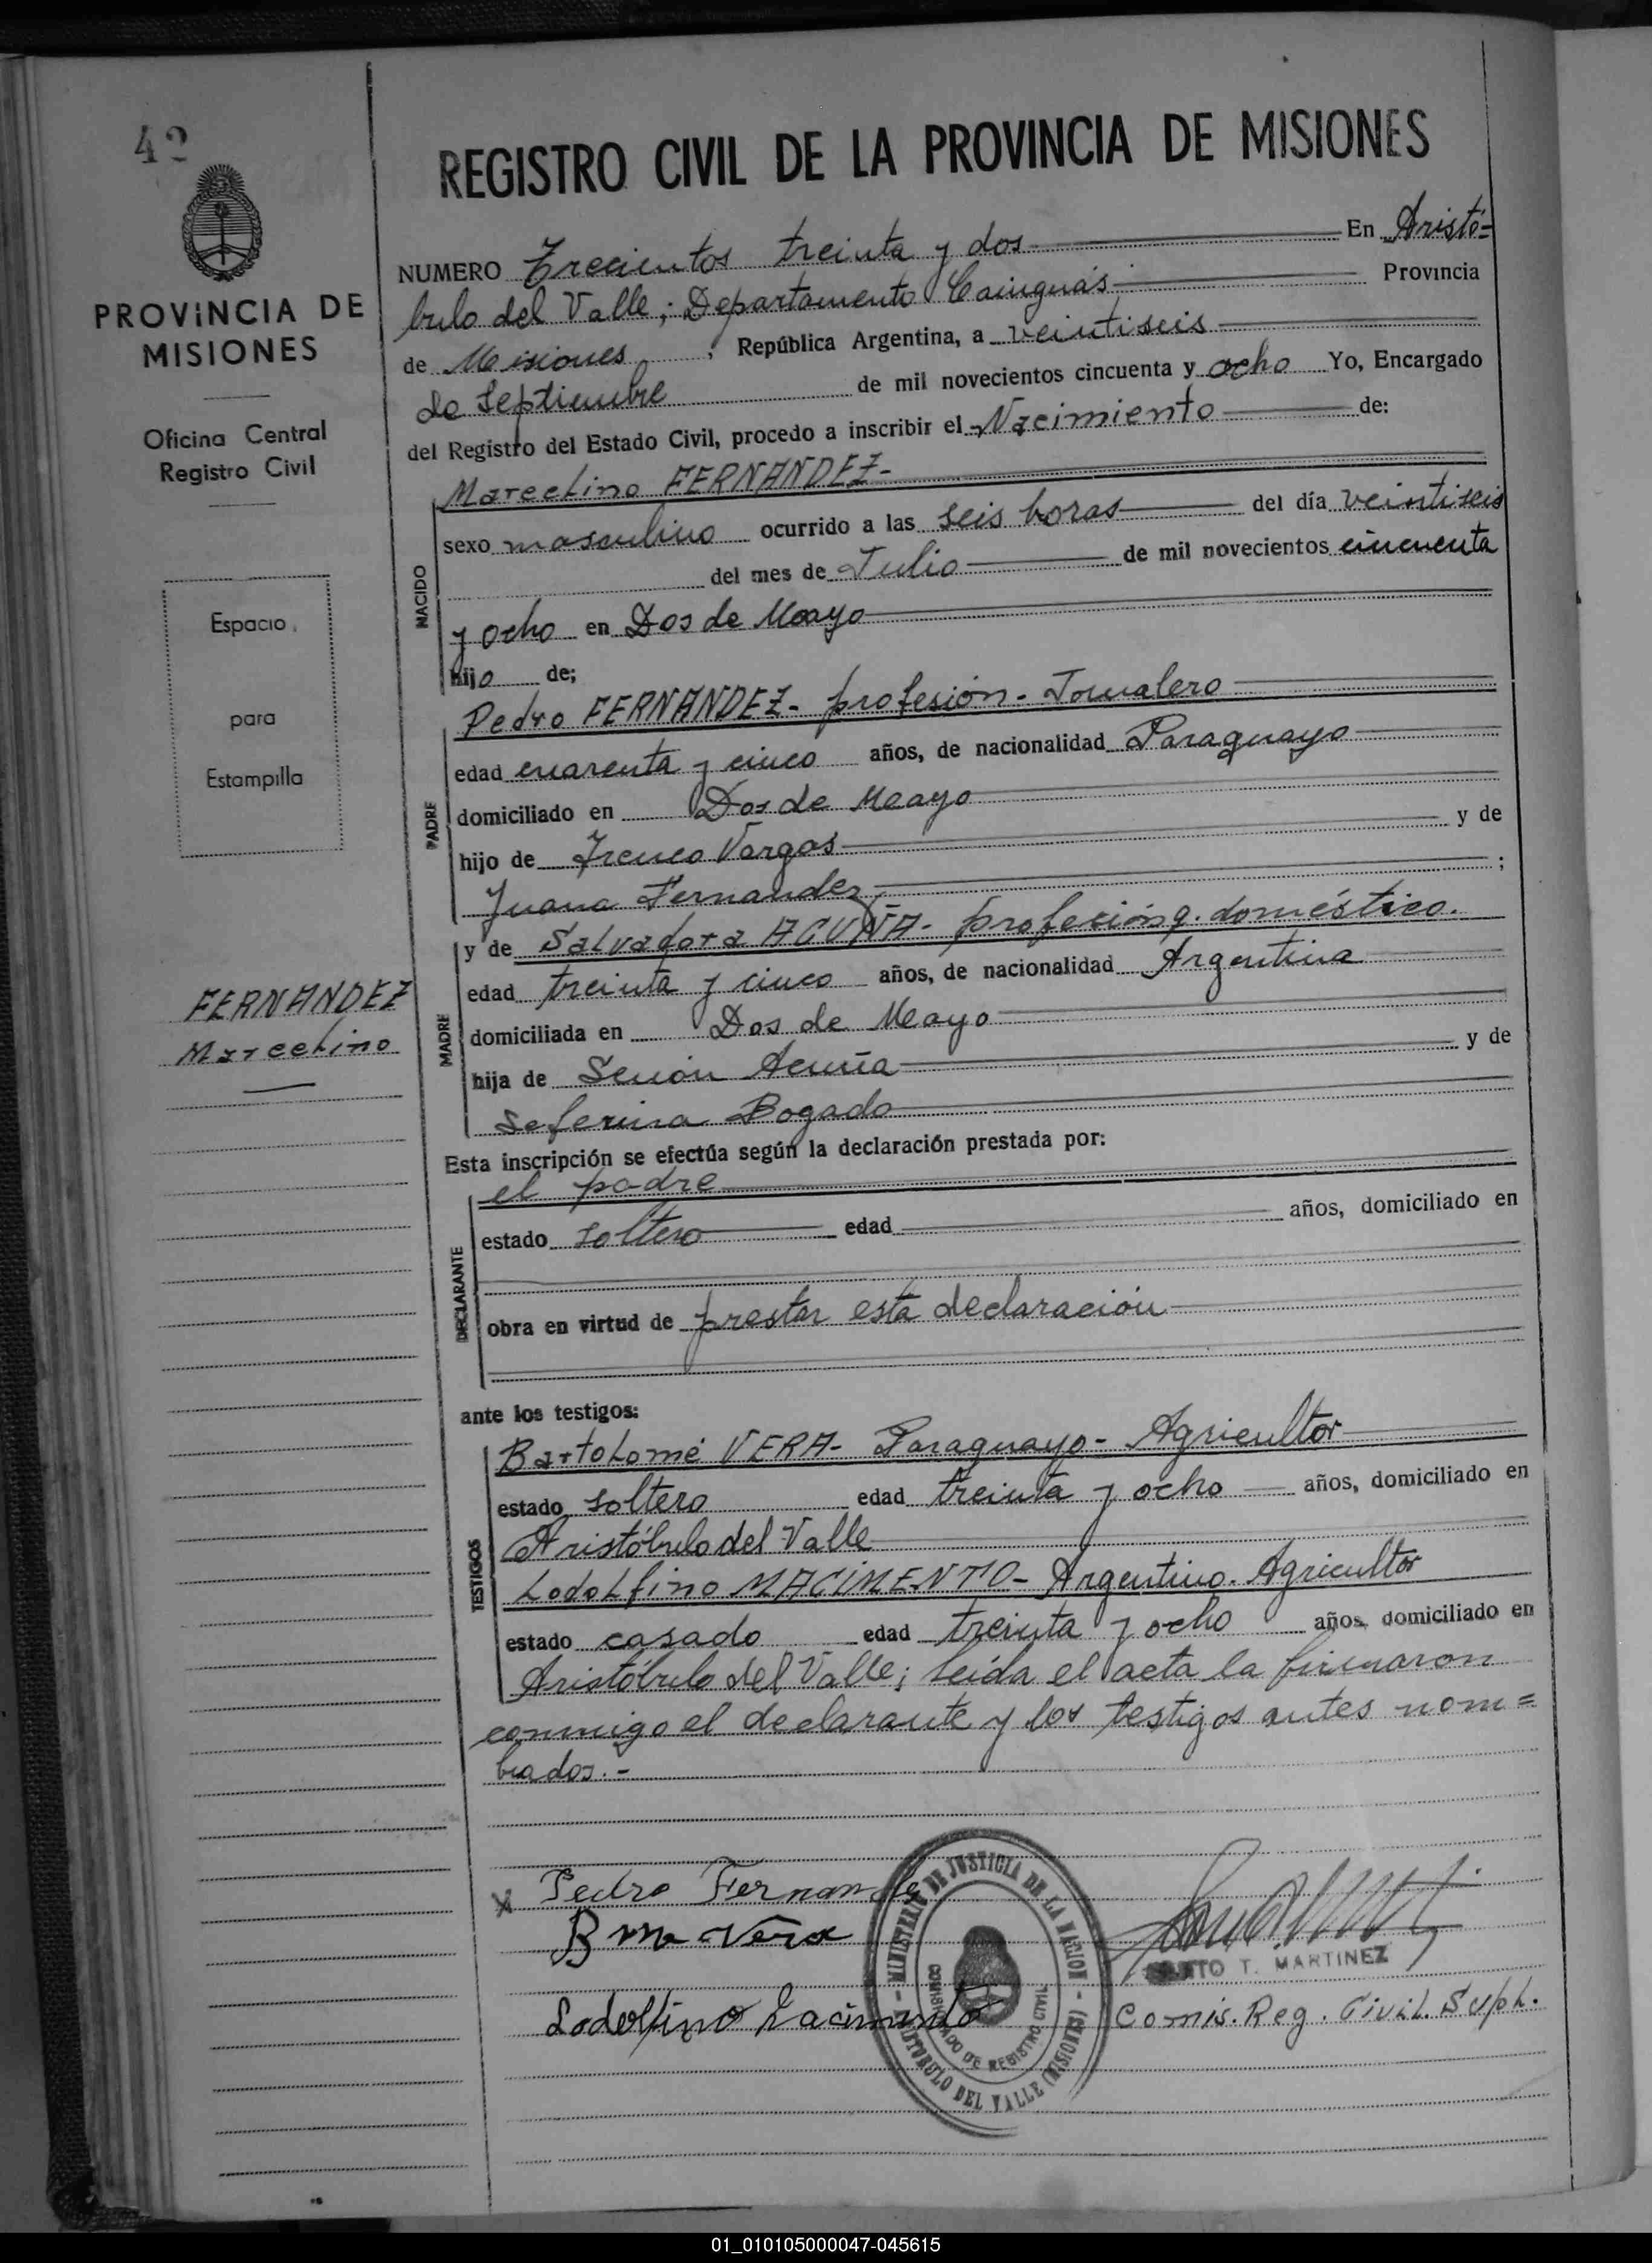 42
REGISTRO CIVIL DE LA PROVINCIA DE MISIONES
PROVINCIA DE
MISIONES
Oficina Central
Registro Civil
Espacio
para
Estampilla
FERNANDEZ
Marcelino
NUMERO Trecientos treinta y dos En Aristó=
bulo del Valle; Departamento Cainguás Provincia
de Misiones, República Argentina, a veintiseis
de Septiembre de mil novecientos cincuenta y ocho Yo, Encargado
del Registro del Estado Civil, procedo a inscribir el Nacimiento de:
NACIDO
Marcelino FERNANDEZ-
sexo masculino ocurrido a las seis horas del día veintiseis
del mes de Julio de mil novecientos cincuenta
y ocho en Dos de Mayo
hijo de;
PADRE
Pedro FERNANDEZ- profesión- Jornalero
edad cuarenta y cinco años, de nacionalidad Paraguayo
domiciliado en Dos de Mayo
hijo de Ireneo Vargas y de
Juana Fernandez ;
MADRE
y de Salvadora ACUÑA- profesión q. doméstico.
edad treinta y cinco años, de nacionalidad Argentina
domiciliada en Dos de Mayo
hija de Senión Acuña y de
Seferina Bogado
Esta inscripción se efectúa según la declaración prestada por:
DECLARANTE
el padre
estado soltero edad años, domiciliado en
obra en virtud de prestar esta declaración
ante los testigos:
TESTIGOS
Bartolomé VERA- Paraguayo- Agricultor
estado soltero edad treinta y ocho años, domiciliado en
Aristóbulo del Valle
Lodolfino NACIMENTO- Argentino. Agricultor
estado casado edad treinta y ocho años, domiciliado en
Aristóbulo del Valle; leída el acta la firmaron
conmigo el declarante y los testigos antes nom=
brados.-
x Pedro Fernandez
Bme Vera
Lodolfino Nacimento
MINISTERIO DE JUSTICIA DE LA NACION
COMISIONADO DE REGISTRO CIVIL
ARISTOBULO DEL VALLE (MISIONES)
T. MARTINEZ
Comis. Reg. Civil. Suph.
01_010105000047-045615